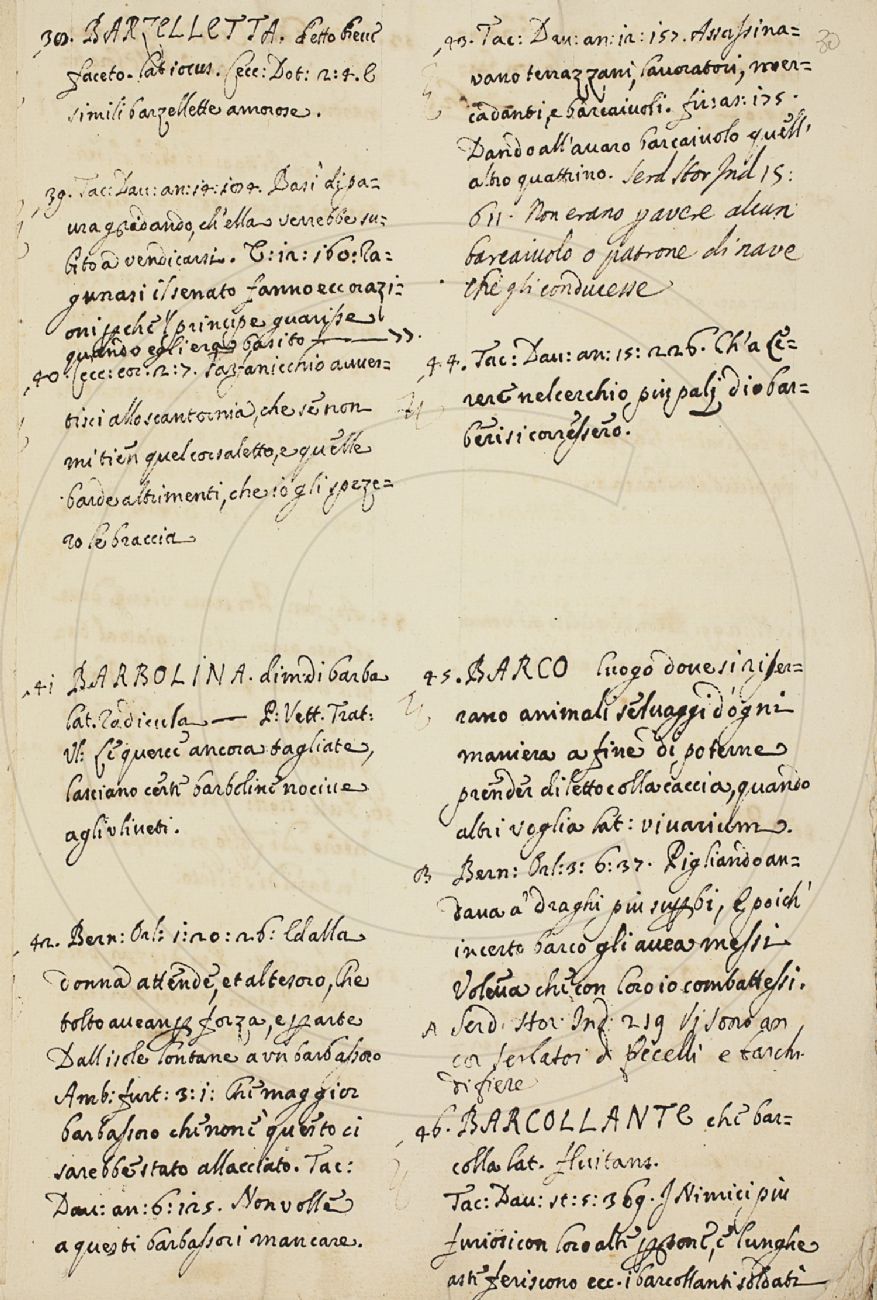 38. BARZELLETTA. detto breve
faceto. lat iocus. Cecc: Dot: 2: 4. E
simili barzellette amorose.
39. Tac: Dau: an: 14: 104. Basì di pa=
ura gridando, ch'ella verrebbe su=
bito a vendicarsi. E: 12: 160: Ra=
gunasi il senato fanno ecc orazi=
oni ꝑche 'l principe guarisse
quando egli era basito
40. Cecc: cor: 2: 7. avver=
tisci allo scantornia, che se non
mi tien quel corsaletto, e quelle
barde altrimenti, che io gli speze=
rò le braccia
41 BARBOLINA. dim: di barba
lat. Radicula — P: Vett. Trat:
Vl: Le querce ancora tagliate,
lasciano certe barboline nocive
agli vliveti.
42. Bern: Orl: 1: 20: 26: Ed alla
donna attende, et al tesoro, Che
tolto avean ꝑ forza, e ꝑ arte
Dall'isole lontane a vn barbassoro
Amb: furt: 3: 1: Che maggior
barbassoro che non è questo ci
sarebbe stato allacciato. Tac:
Dau: an: 6: 125. Non volle
a questi barbassori mancare.
30
43. Tac: Dau: an: 12: 157. Assassina=
vano terrazzani, lavoratori, mer=
cadanti, e barcaiuoli. fir: as: 175.
Dando all'avaro barcaiuolo quell'
altro quattrino. Serd Stor Ind 15:
611. Non erano ꝑ avere alcun
barcaiuolo o patrone di nave
che gli conducesse
44. Tac: Dau: an: 15: 226. Ch'a Ce=
rere nel cerchio più palj di bar=
beri si corressero.
45. BARCO luogo dove si riser=
rano animali selvaggi d'ogni
maniera a fine di poterne
prender diletto colla caccia, quando
altri voglia lat: vivarium.
B Bern: Orl: 3: 6: 37. Pigliando an=
dava a' draghi più suꝑbi, E poich'
in certo barco gli avea messi
Voleva che con loro io combattessi.
A Serd Stor Ind 219 Vi sono an
cor serlatoi d'Vccelli e barchi
di fiere
46. BARCOLLANTE che bar=
colla lat. fluitans.
Tac: Dau: st: 5: 369. I Nimici più
furiosi con loro alte ꝑsone, e lunghe
aste feriscono ecc. i barcollanti soldati